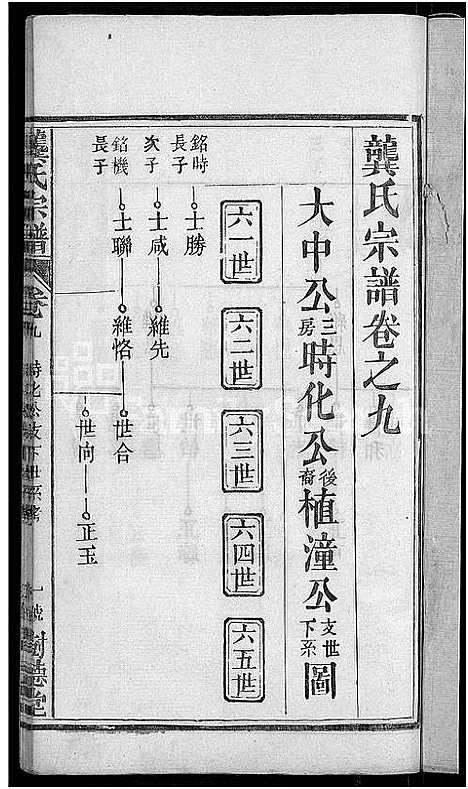 龔氏宗譜卷之九
大中公三房時化公後裔植潼公支下世系圖
六一世 六二世 六三世 六四世 六五世
銘時長子 士勝
次子 士咸 維先
銘機長子 士聯 維恪 世合
世向 正玉
龔氏宗譜 卷之九 時化公支下世系